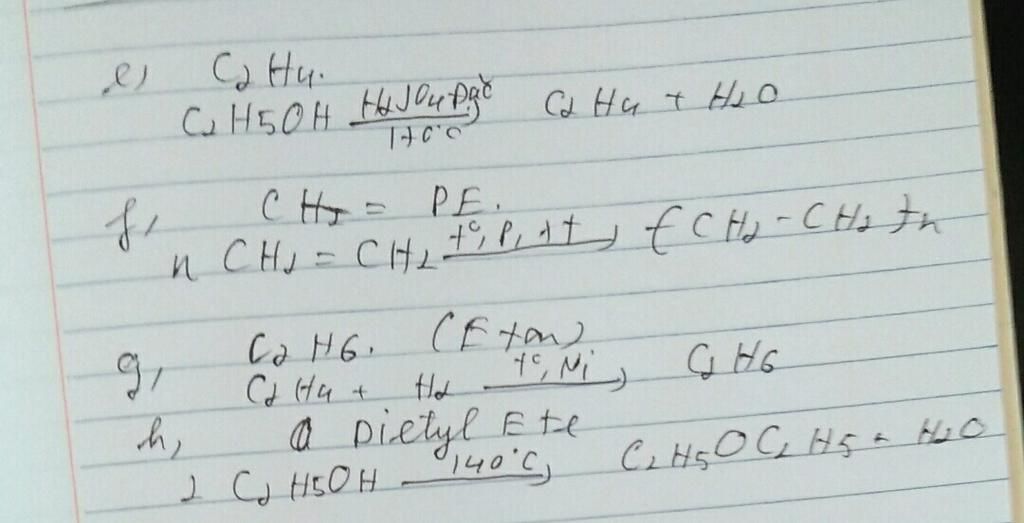 e, C2H4.
C2H5OH H2SO4 đặc 170°C C2H4 + H2O
f, PE.
n CH2 = CH2 t°, P, xt (CH2 - CH2)n
g, C2H6. (Etan)
C2H4 + H2 t°, Ni C2H6
h, Dietyl Ete
2 C2H5OH 140°C C2H5OC2H5 + H2O